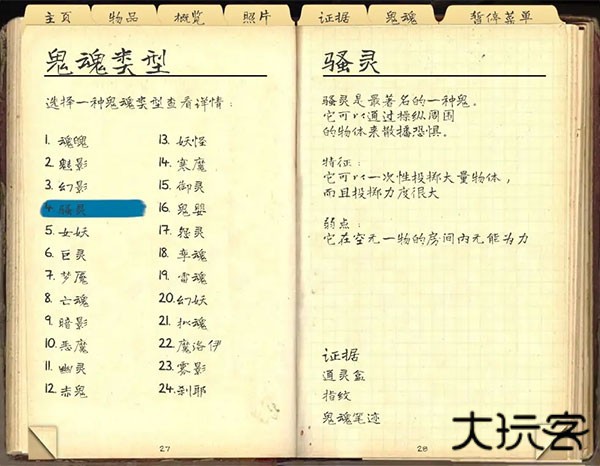 主页 物品 概览 照片 证据 鬼魂 暂停菜单
鬼魂类型
选择一种鬼魂类型查看详情:
1. 魂魄
2. 魅影
3. 幻影
4. 骚灵
5. 女妖
6. 巨灵
7. 梦魇
8. 亡魂
9. 暗影
10. 恶魔
11. 幽灵
12. 赤鬼
13. 妖怪
14. 寒魔
15. 御灵
16. 鬼婴
17. 怨灵
18. 孪魂
19. 雷魂
20. 幻妖
21. 拟魂
22. 魔洛伊
23. 雾影
24. 刹耶
27
骚灵
骚灵是最著名的一种鬼。
它可以通过操纵周围
的物体来散播恐惧。
特征:
它可以一次性投掷大量物体,
而且投掷力度很大
弱点:
它在空无一物的房间内无能为力
证据
通灵盒
指纹
鬼魂笔迹
28
大玩客